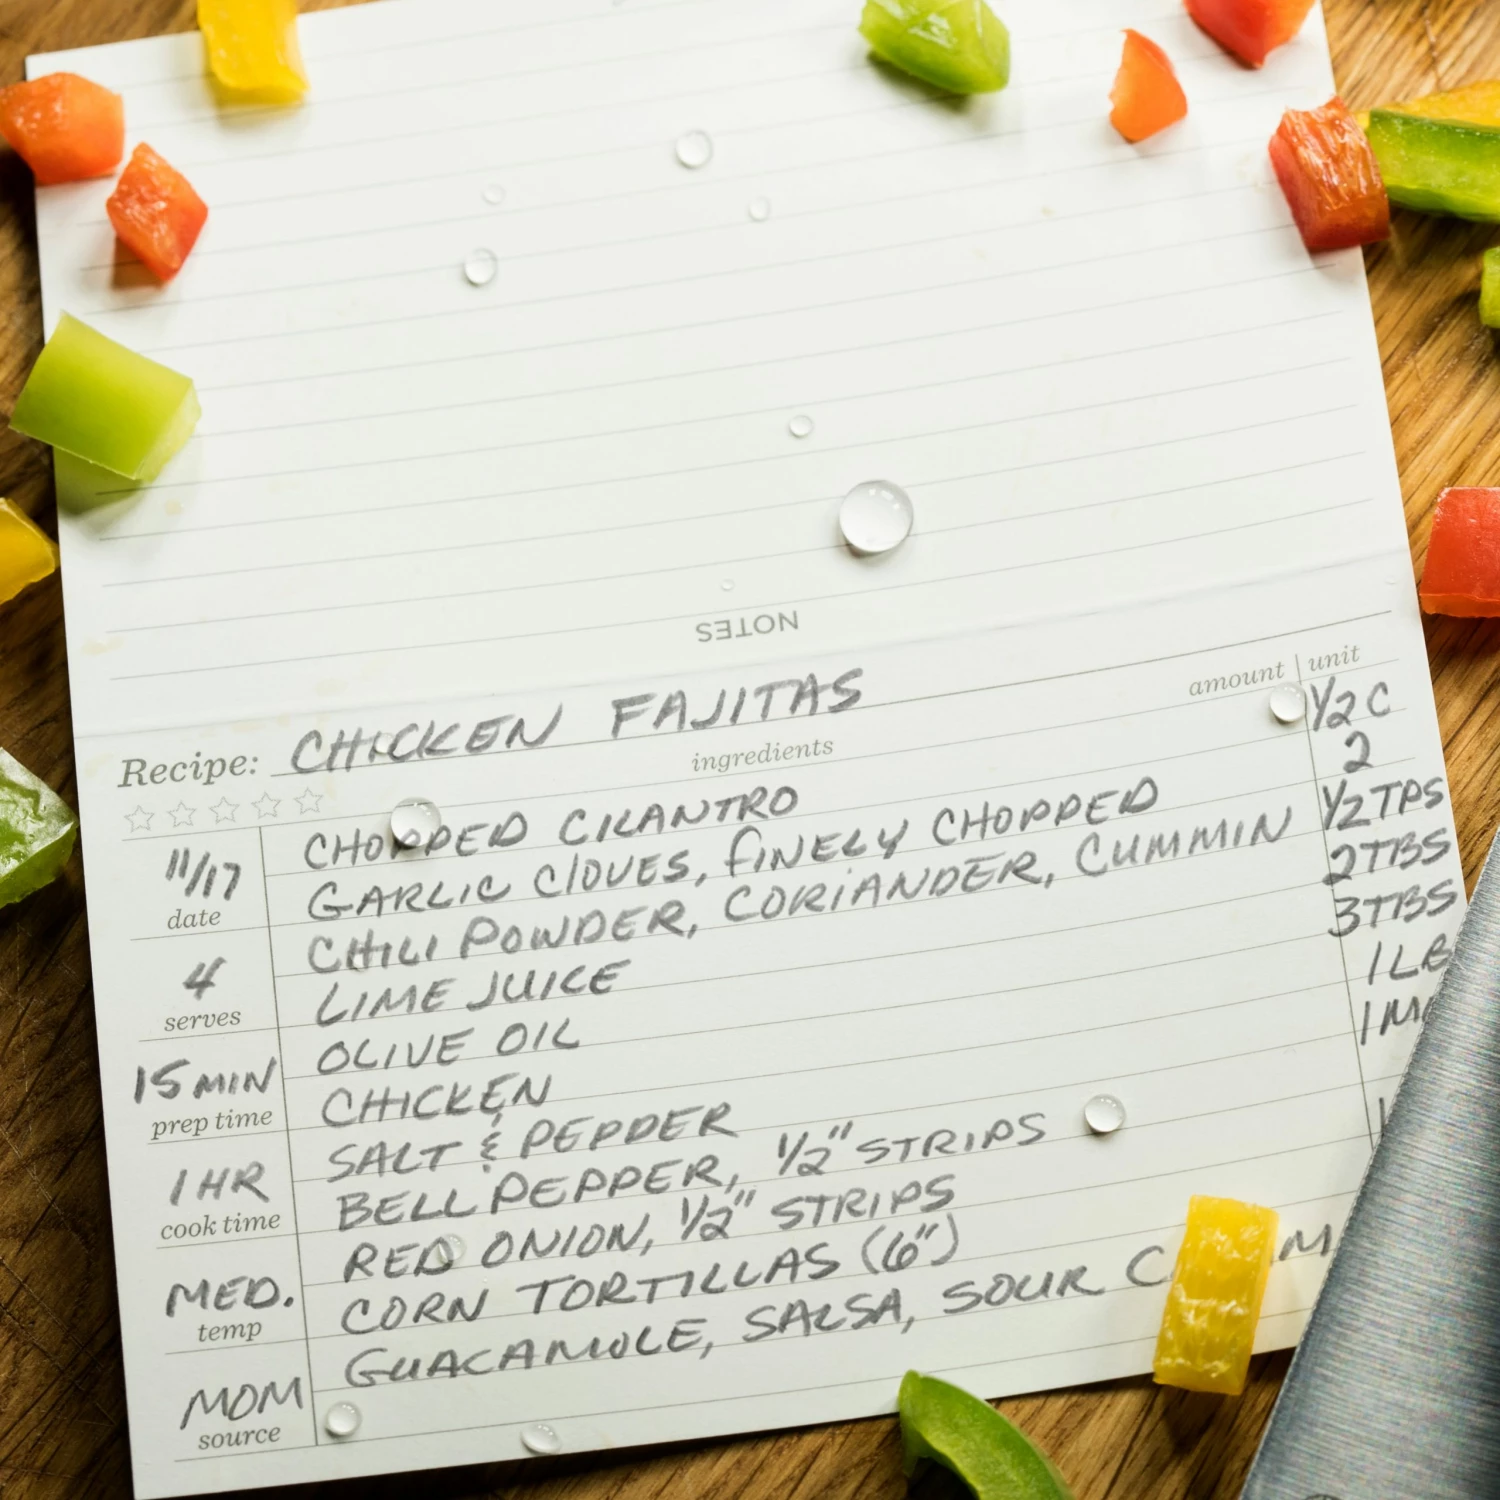 NOTES
Recipe: CHICKEN FAJITAS
ingredients
amount | unit
CHOPPED CILANTRO 1/2 C
GARLIC CLOVES, FINELY CHOPPED 2
CHILI POWDER, CORIANDER, CUMMIN 1/2 TPS
LIME JUICE 2 TBS
OLIVE OIL 3 TBS
CHICKEN 1 LB
SALT & PEPPER
BELL PEPPER, 1/2" STRIPS
RED ONION, 1/2" STRIPS
CORN TORTILLAS (6")
GUACAMOLE, SALSA, SOUR
11/17
date
4
serves
15 MIN
prep time
1 HR
cook time
MED.
temp
MOM
source